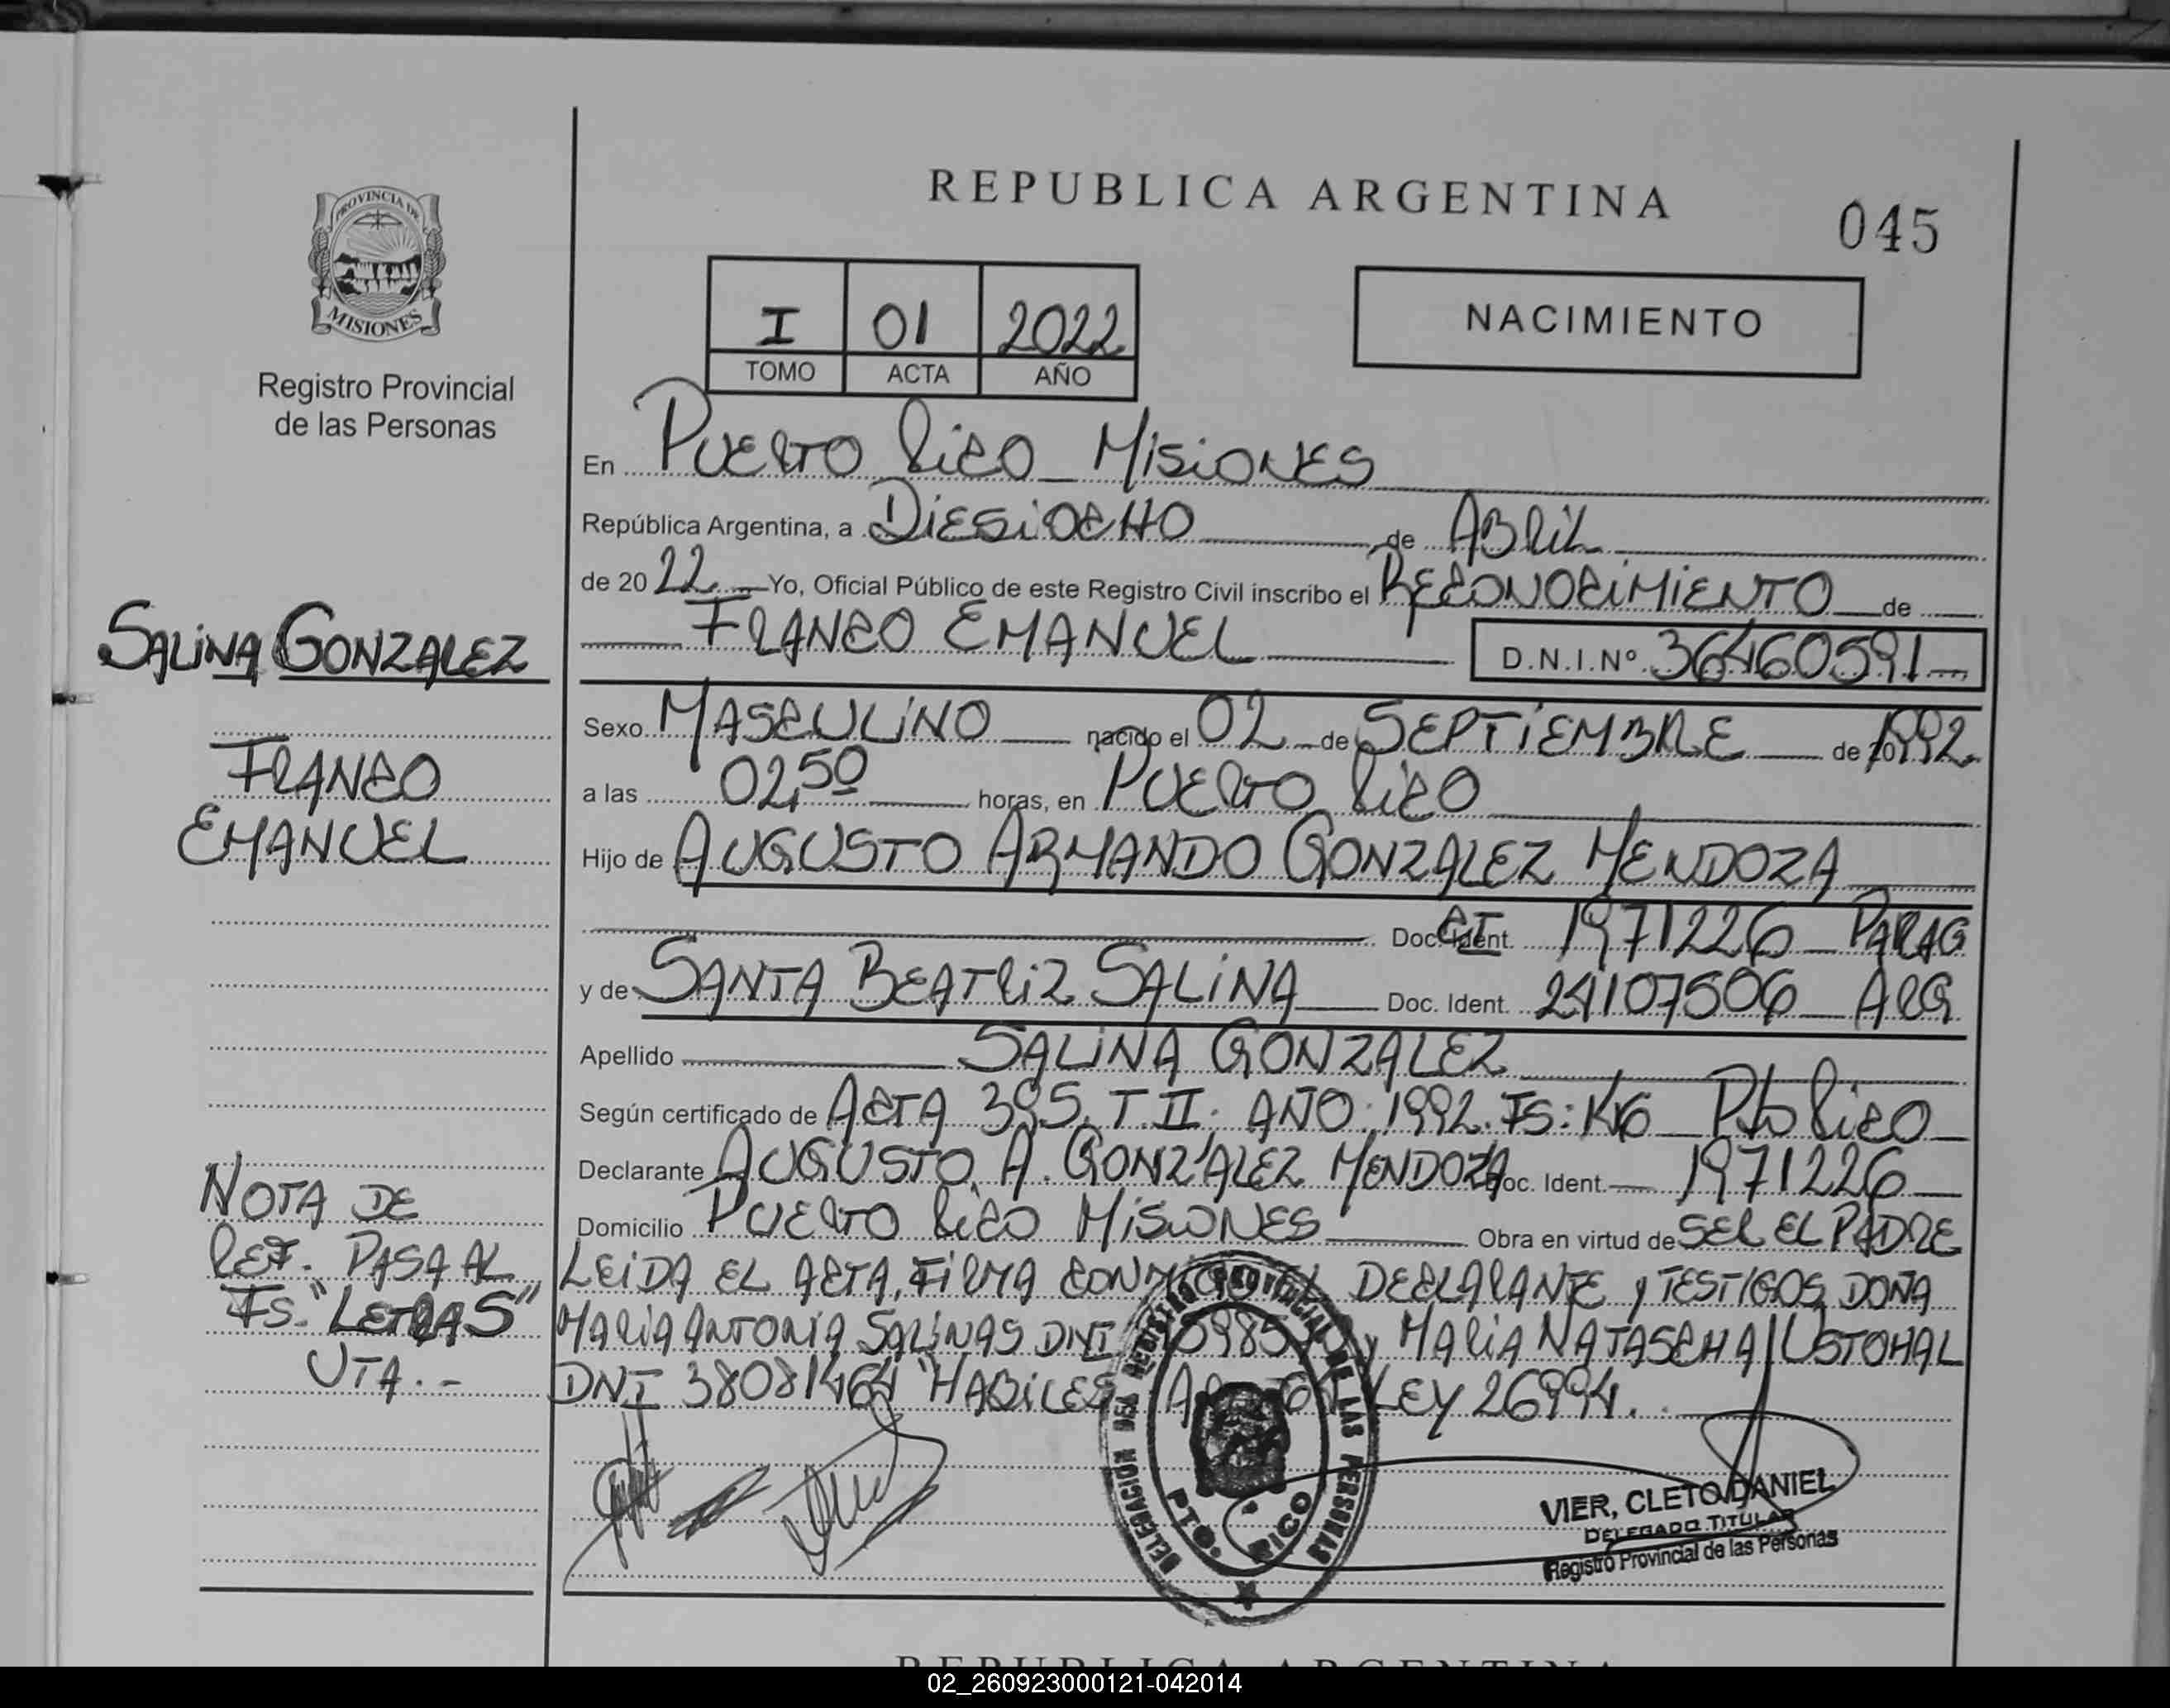 REPUBLICA ARGENTINA
045
PROVINCIA DE
MISIONES
Registro Provincial
de las Personas
I 01 2022
TOMO ACTA AÑO
NACIMIENTO
En Puerto Rico Misiones
República Argentina, a Diesiocho de Abril
de 2022 Yo, Oficial Público de este Registro Civil inscribo el Reconocimiento de
Franco Emanuel D.N.I.Nº 36460591
Salina Gonzalez
Franco
Emanuel
Sexo Masculino nacido el 02 de Septiembre de 1992
a las 02,50 horas, en Puerto Rico
Hijo de Augusto Armando Gonzalez Mendoza
Doc. Ident. CI 1971226 Parag
y de Santa Beatriz Salina Doc. Ident. 24107506 Arg
Apellido Salina Gonzalez
Según certificado de Acta 395. T. II. Año: 1992. Fs: Pto Rico
Declarante Augusto A. Gonzalez Mendoza Doc. Ident. 1971226
Domicilio Puerto Rico Misiones Obra en virtud de ser el padre
Nota de
Ref. Pasa al
Fs. "Letras"
UTA.-
Leida el acta, firma declarante y testigos, Doña
Maria Antonia Salinas DNI y Maria Natascha Ustohal
DNI 38081464 "Habiles Ley 26994.
DELEGACION REGISTRO PROVINCIAL DE LAS PERSONAS
PTO. RICO
VIER, CLETO DANIEL
DELEGADO TITULAR
Registro Provincial de las Personas
REPUBLICA ARGENTINA
02_260923000121-042014